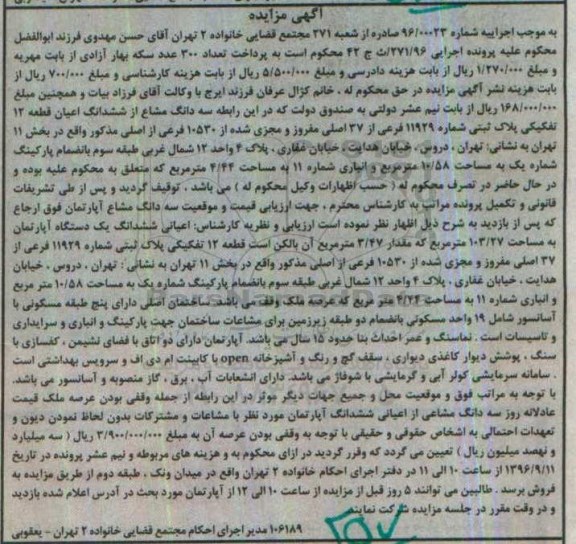 آگهی مزایده
به موجب اجراییه شماره ۹۶/۰۰۰۲۳ صادره از شعبه ۲۷۱ مجتمع قضایی خانواده ۲ تهران آقای حسن مهدوی فرزند ابوالفضل
محکوم علیه پرونده اجرایی ۲۷۱/۹۶/ث ج ۴۲ محکوم است به پرداخت تعداد ۳۰۰ عدد سکه بهار آزادی از بابت مهریه
و مبلغ ۱/۲۷۰/۰۰۰ ریال از بابت هزینه دادرسی و مبلغ ۵/۵۰۰/۰۰۰ ریال از بابت هزینه کارشناسی و مبلغ ۷۰۰/۰۰۰ ریال از
بابت هزینه نشر آگهی مزایده در حق محکوم له ، خانم کژال عرفان فرزند ایرج با وکالت آقای فرزاد بیات و همچنین مبلغ
۱۶۸/۰۰۰/۰۰۰ ریال از بابت نیم عشر دولتی به صندوق دولت که در این رابطه سه دانگ مشاع از ششدانگ اعیان قطعه ۱۲
تفکیکی پلاک ثبتی شماره ۱۱۹۲۹ فرعی از ۳۷ اصلی مفروز و مجزی شده از ۱۰۵۳۰ فرعی از اصلی مذکور واقع در بخش ۱۱
تهران به نشانی: تهران ، دروس ، خیابان هدایت ، خیابان غفاری ، پلاک ۴ واحد ۱۲ شمال غربی طبقه سوم بانضمام پارکینگ
شماره یک به مساحت ۱۰/۵۸ مترمربع و انباری شماره ۱۱ به مساحت ۴/۴۴ مترمربع که متعلق به محکوم علیه بوده و
در حال حاضر در تصرف محکوم له ( حسب اظهارات وکیل محکوم له ) می باشد ، توقیف گردید و پس از طی تشریفات
قانونی و تکمیل پرونده مراتب به کارشناس محترم ، جهت ارزیابی قیمت و موقعیت سه دانگ مشاع آپارتمان فوق ارجاع
که پس از بازدید به شرح ذیل اظهار نظر نموده است ارزیابی و نظریه کارشناس: اعیانی ششدانگ یک دستگاه آپارتمان
به مساحت ۱۰۳/۲۷ مترمربع که مقدار ۳/۴۷ مترمربع آن بالکن است قطعه ۱۲ تفکیکی پلاک ثبتی شماره ۱۱۹۲۹ فرعی از
۳۷ اصلی مفروز و مجزی شده از ۱۰۵۳۰ فرعی از اصلی مذکور واقع در بخش ۱۱ تهران به نشانی : تهران ، دروس ، خیابان
هدایت ، خیابان غفاری ، پلاک ۴ واحد ۱۲ شمال غربی طبقه سوم بانضمام پارکینگ شماره یک به مساحت ۱۰/۵۸ متر مربع
و انباری شماره ۱۱ به مساحت ۴/۲۴ متر مربع که عرصه ملک وقف می باشد ساختمان اصلی دارای پنج طبقه مسکونی با
آسانسور شامل ۱۹ واحد مسکونی بانضمام دو طبقه زیرزمین برای مشاعات ساختمان جهت پارکینگ و انباری و سرایداری
و تاسیسات است . نماسنگ و عمر احداث بنا حدود ۱۵ سال می باشد. آپارتمان دارای دو اتاق با فضای نشیمن ، کفسازی با
سنگ ، پوشش دیوار کاغذی دیواری ، سقف گچ و رنگ و آشپزخانه open با کابینت ام دی اف و سرویس بهداشتی است
. سامانه سرمایشی کولر آبی و گرمایشی با شوفاژ می باشد. دارای انشعابات آب ، برق ، گاز منصوبه و آسانسور می باشد.
با توجه به مراتب فوق و موقعیت محل و جمیع جهات دیگر موثر در این رابطه از جمله وقفی بودن عرصه ملک قیمت
عادلانه روز سه دانگ مشاعی از اعیانی ششدانگ آپارتمان مورد نظر با مشاعات و مشترکات بدون لحاظ نمودن دیون و
تعهدات احتمالی به اشخاص حقوقی و حقیقی با توجه به وقفی بودن عرصه آن به مبلغ ۳/۹۰۰/۰۰۰/۰۰۰ ریال ( سه میلیارد
و نهصد میلیون ریال ) تعیین می گردد که وقرر گردید در ازای محکوم به و هزینه های مربوطه و نیم عشر پرونده در تاریخ
۱۳۹۶/۹/۱۱ از ساعت ۱۰ الی ۱۱ در دفتر اجرای احکام خانواده ۲ تهران واقع در میدان ونک ، طبقه دوم از طریق مزایده به
فروش برسد . طالبین می توانند ۵ روز قبل از مزایده از ساعت ۱۰ الی ۱۲ از آپارتمان مورد بحث در آدرس اعلام شده بازدید
و در وقت مقرر در جلسه مزایده شرکت نمایند
۱۰۶۱۸۹ مدیر اجرای احکام مجتمع قضایی خانواده ۲ تهران - یعقوبی